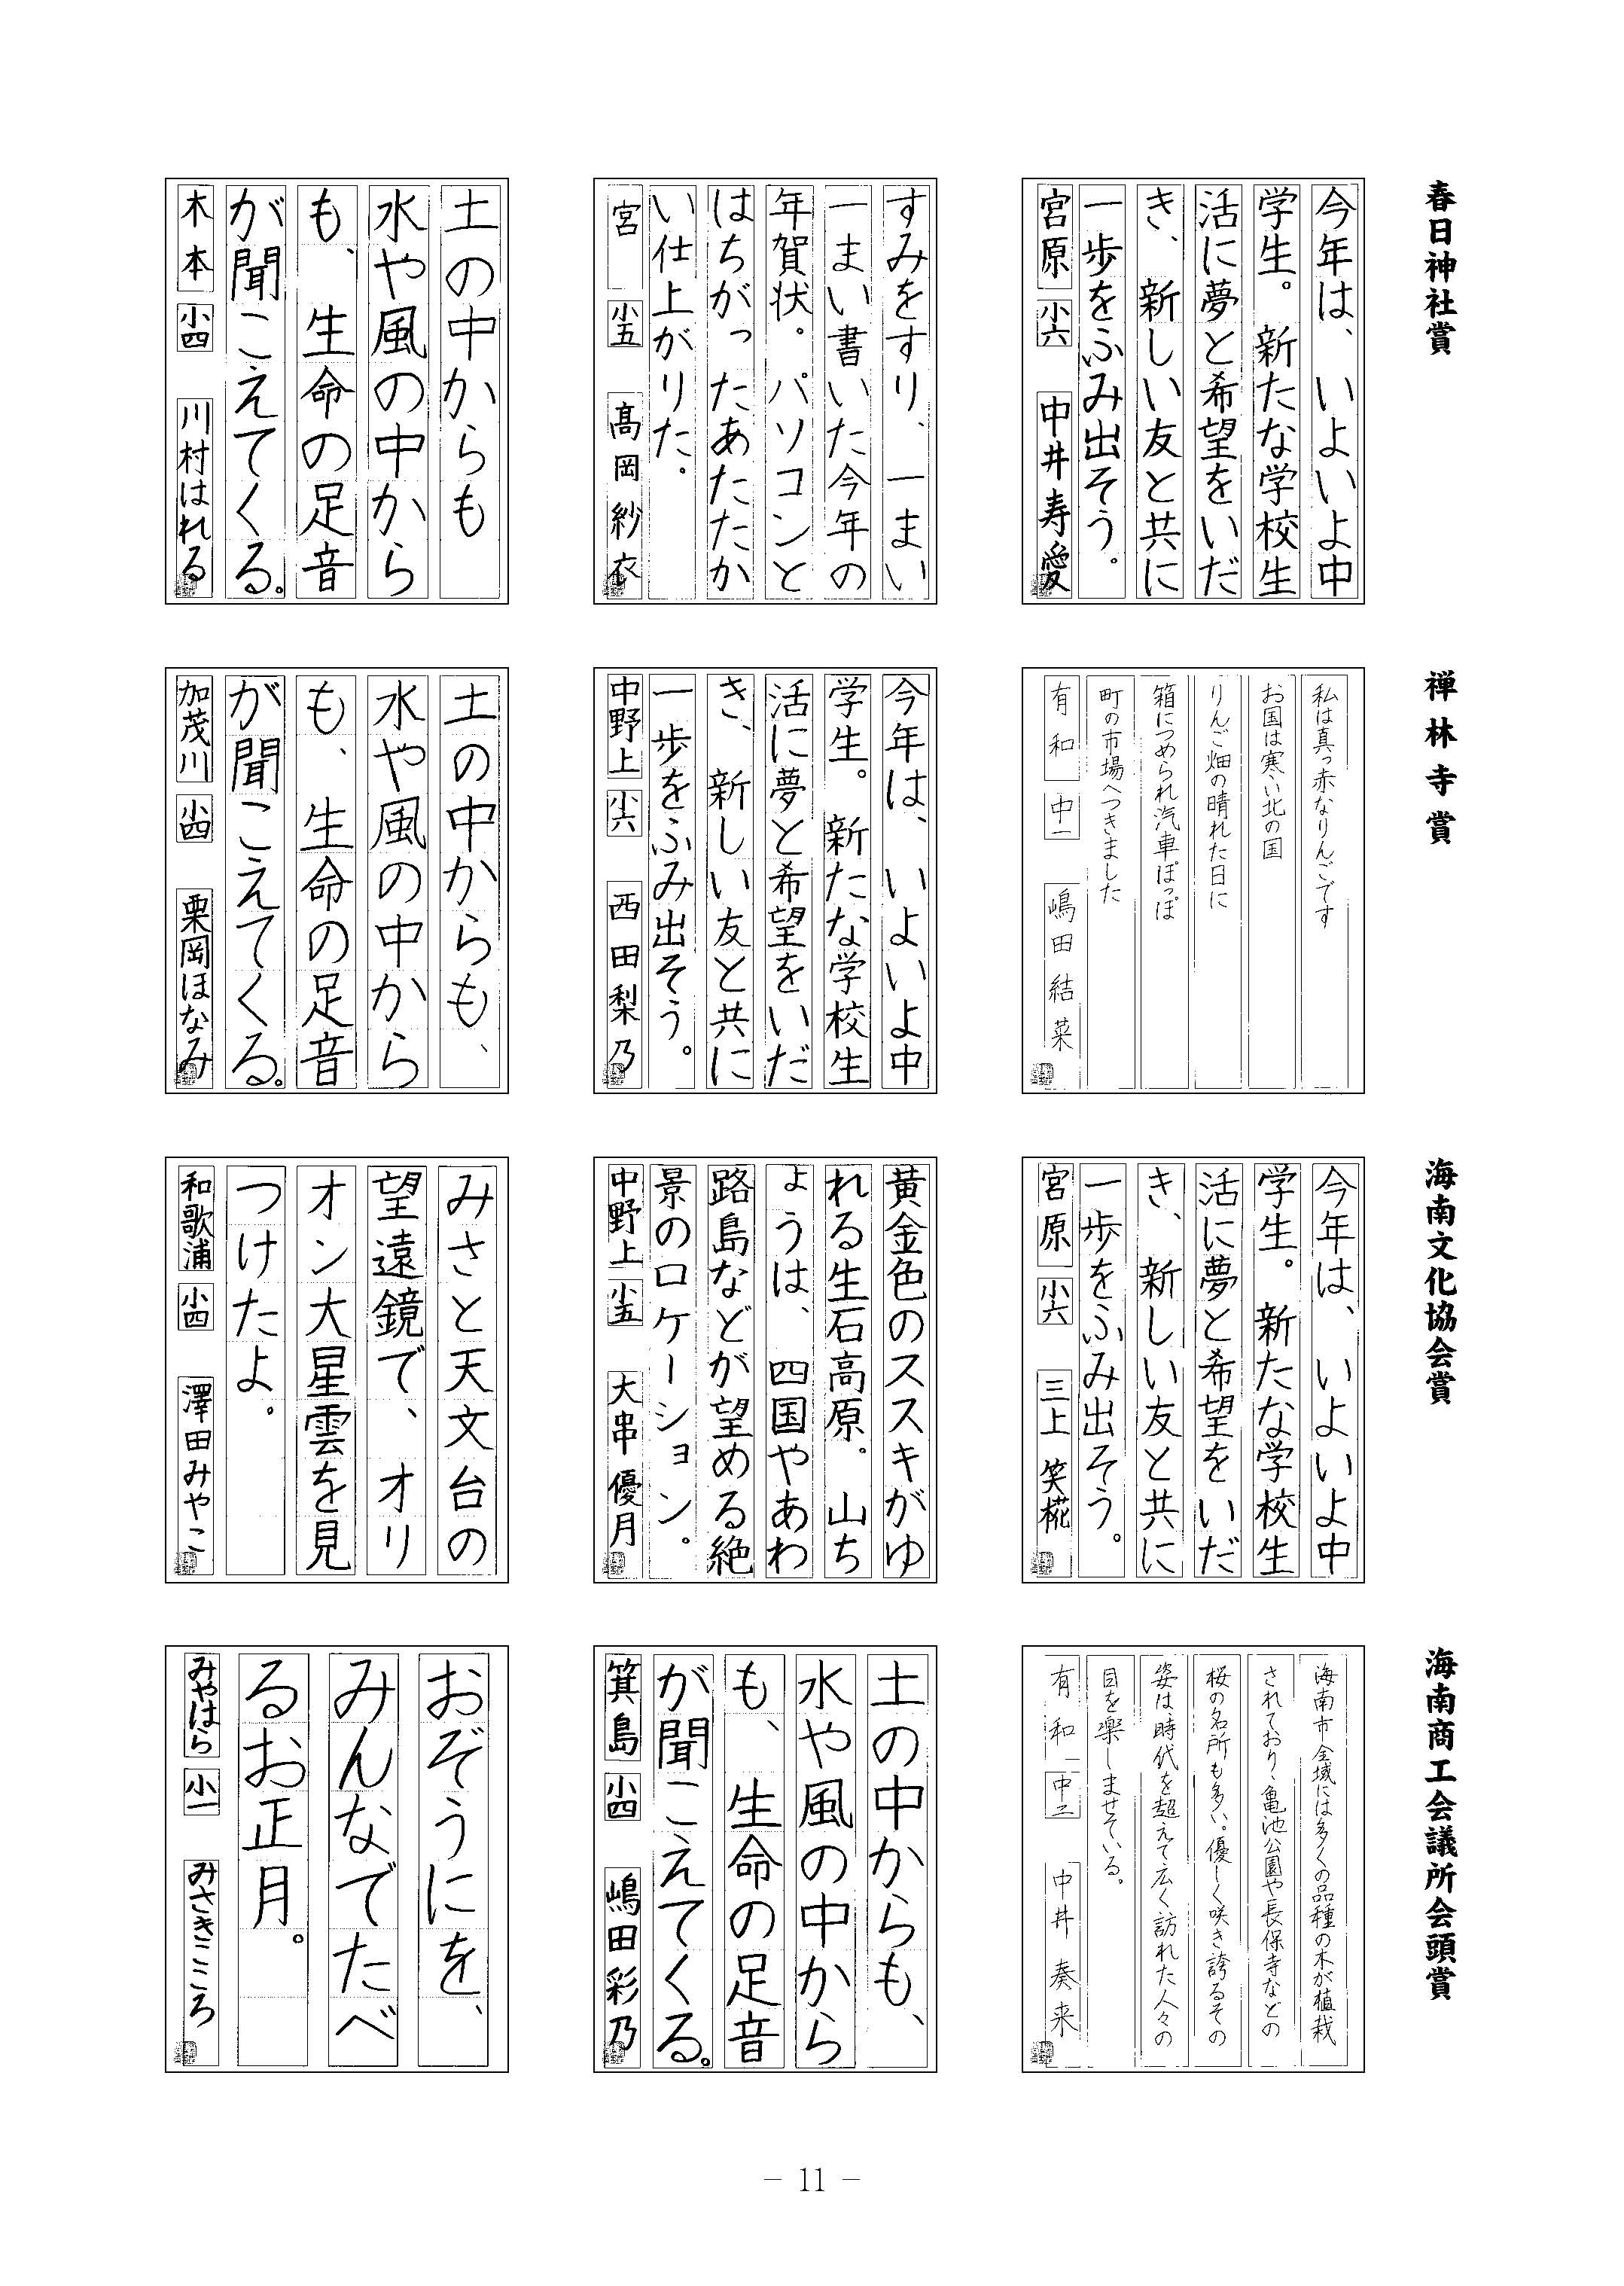 春日神社賞
今年は、いよいよ中
学生。新たな学校生
活に夢と希望をいだ
き、新しい友と共に
一歩をふみ出そう。
宮原 小六 中井寿愛
すみをすり、一まい
一まい書いた今年の
年賀状。パソコンと
はちがったあたたか
い仕上がりた。
宮 小五 髙岡紗衣
土の中からも
水や風の中から
も、生命の足音
が聞こえてくる。
木本 小四 川村はれる
禅林寺賞
私は真っ赤なりんごです
お国は寒い北の国
りんご畑の晴れた日に
箱につめられ汽車ぽっぽ
町の市場へつきました
有和 中一 嶋田結菜
今年は、いよいよ中
学生。新たな学校生
活に夢と希望をいだ
き、新しい友と共に
一歩をふみ出そう。
中野上 小六 西田梨乃
土の中からも、
水や風の中から
も、生命の足音
が聞こえてくる。
加茂川 小四 栗岡ほなみ
海南文化協会賞
今年は、いよいよ中
学生。新たな学校生
活に夢と希望をいだ
き、新しい友と共に
一歩をふみ出そう。
宮原 小六 三上笑椛
黄金色のススキがゆ
れる生石高原。山ち
ょうは、四国やあわ
路島などが望める絶
景のロケーション。
中野上 小五 大串優月
みさと天文台の
望遠鏡で、オリ
オン大星雲を見
つけたよ。
和歌浦 小四 澤田みやこ
海南商工会議所会頭賞
海南市全域には多くの品種の木が植栽
されており、亀池公園や長保寺などの
桜の名所も多い。優しく咲き誇るその
姿は、時代を超えて広く訪れた人々の
目を楽しませている。
有和 中二 中井奏来
土の中からも、
水や風の中から
も、生命の足音
が聞こえてくる。
箕島 小四 嶋田彩乃
おぞうにを、
みんなでたべ
るお正月。
みやはら 小一 みさきこころ
- 11 -